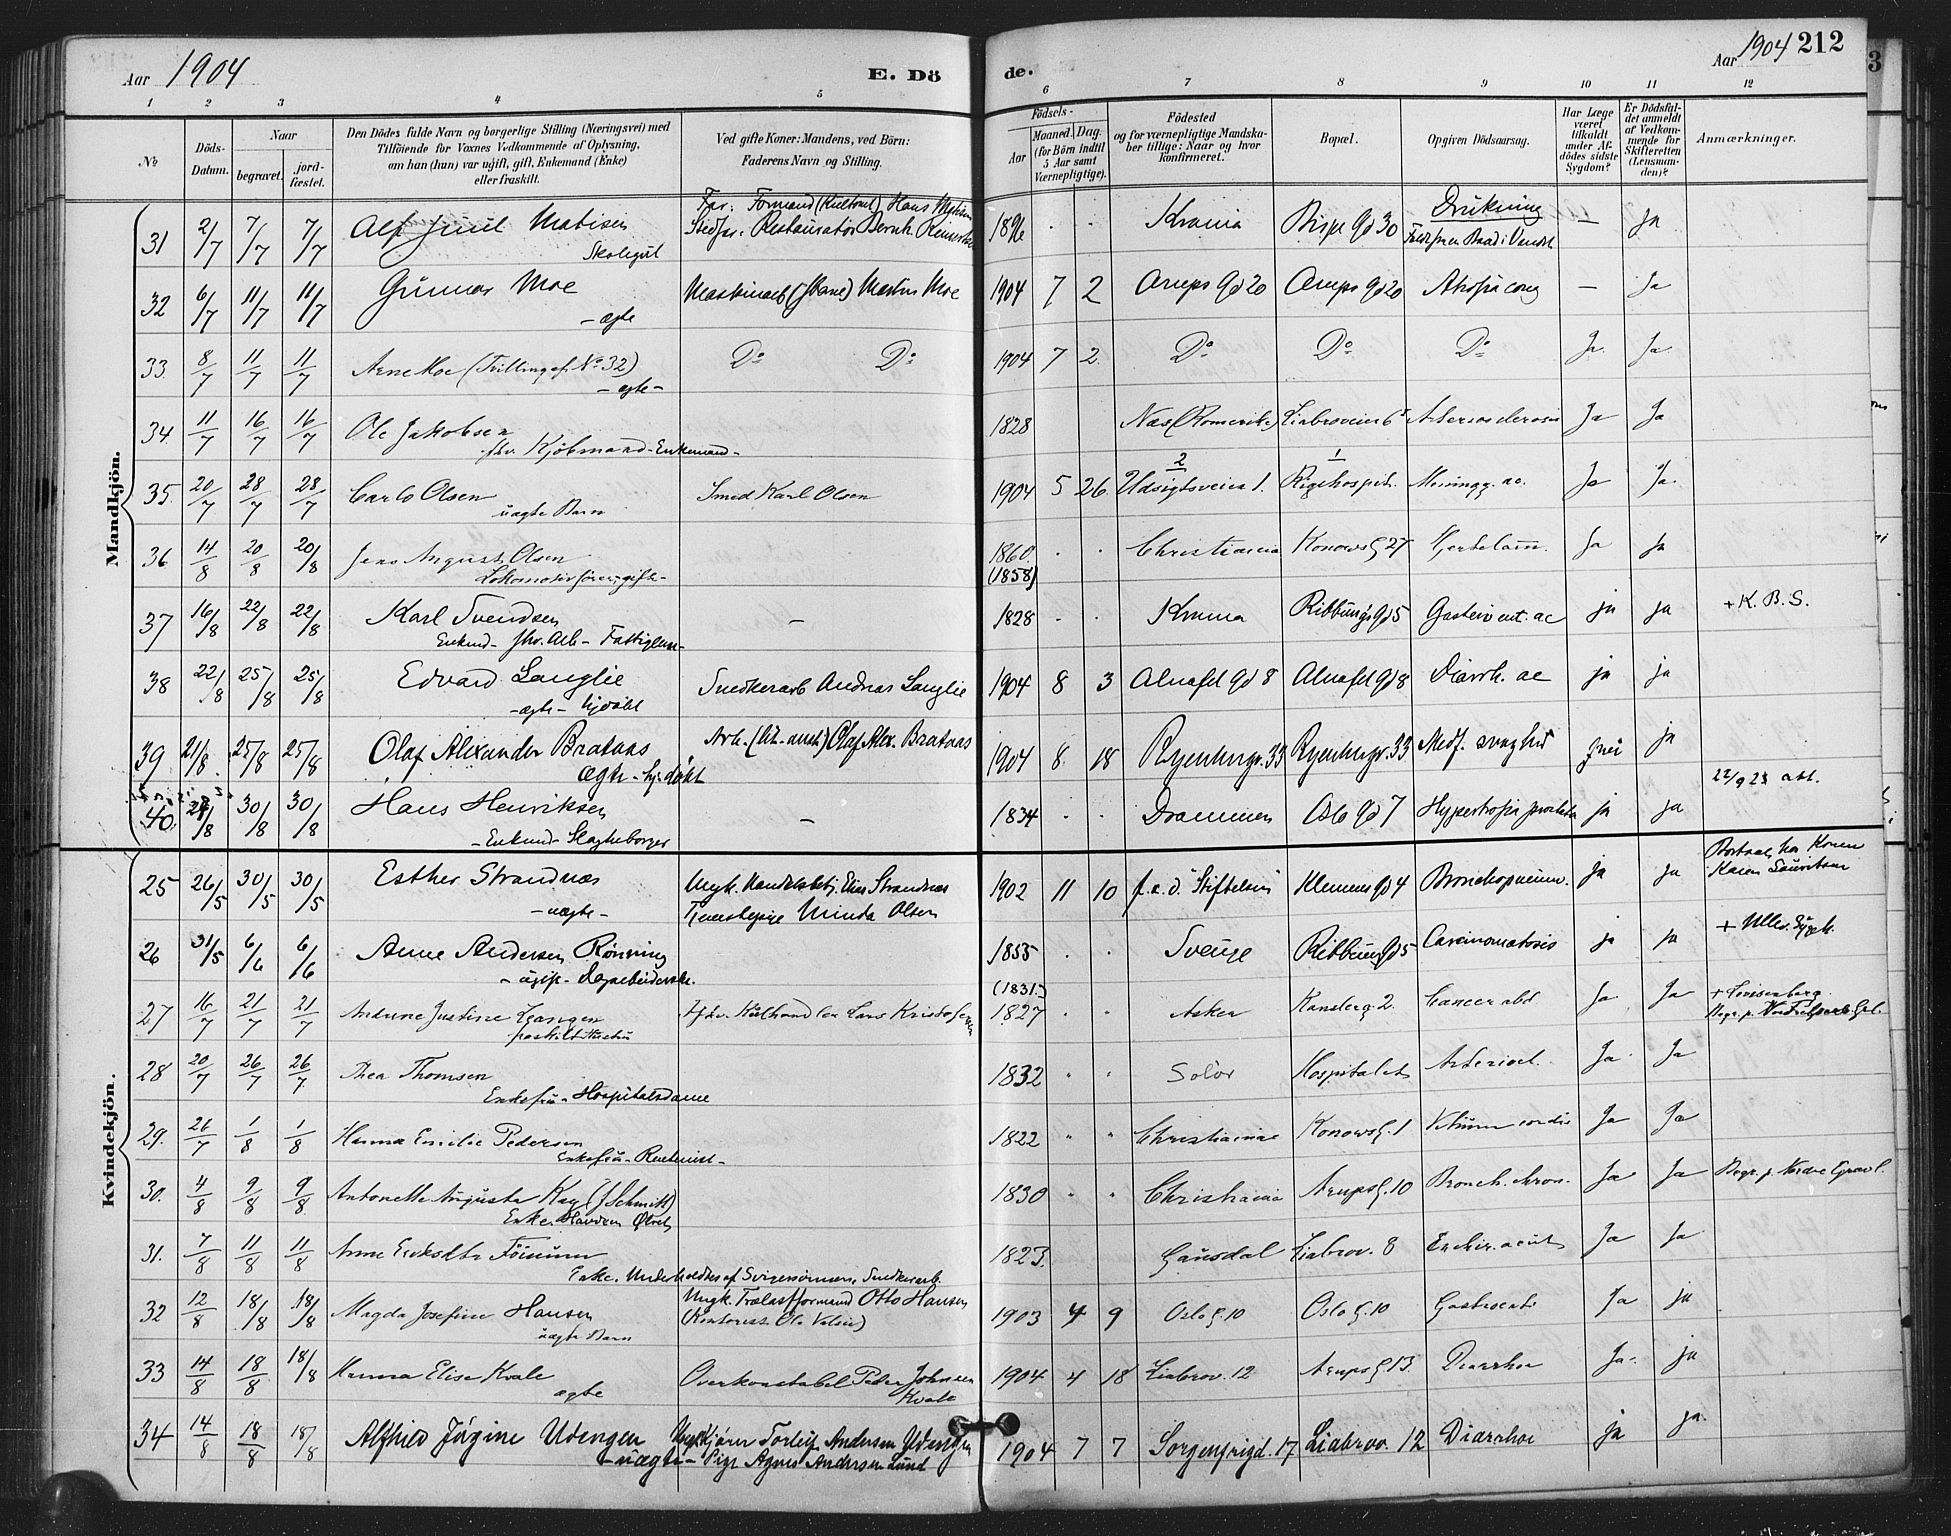 Aar 1904 E. Dö de. Aar 1904 212
3
1 2 3 4 5 6 7 8 9 10 11 12
No
Döds-Datum.
Naar
begravet.
jord-fæstet.
Den Dödes fulde Navn og borgerlige Stilling (Næringsvei) med
Tilföiende for Voxnes Vedkommende af Oplysning,
om han (hun) var ugift, gift, Enkemand (Enke)
eller fraskilt.
Ved gifte Koner: Mandens, ved Börn:
Faderens Navn og Stilling.
Födsels-
Aar
Maaned. Dag.
(for Börn indtil
5 Aar samt
Værnepligtige).
Födested
og for værnepligtige Mandska-
ber tillige: Naar og hvor
konfirmeret.
Bopæl.
Opgiven Dödsaarsag.
Har Læge
været
tilkaldt
under Af-
dödes sidste
Sygdom?
Er Dödsfal-
det anmeldt
af Vedkom-
mende for
Skifteretten
(Lensman-
den)?
Anmærkninger.
Mandkjön.
Far: Formand Hans
31 2/7 7/7 7/7 Alf Juul Matisen Stedfar. Restauratør Bernh. 1896 . . Krania Bispe Gd 30 Drukning — ja
Skolegut
32 6/7 11/7 11/7 Gunnar Moe Maskinarb Martin Moe 1904 7 2 Arups Gd 20 Arups Gd 20 Atrofia cong — Ja
- ægte
33. 8/7 11/7 11/7 Arne Moe (Tvilling af No 32) Do Do 1904 7 2. Do Do Do Ja Ja
- ægte -
34. 11/7 16/7 16/7 Ole Jakobsen 1828 Næs (Romerike) Liabroveien 6 Arteriosclerosis Ja Ja
fhv. Kjöbmand - Enkemand -
35. 20/7 28/7 28/7 Carlo Olsen Smed Karl Olsen 1904 5 26. 2 Udsigtsveien 1. 1 Rigshospit. Mening. ac. Ja Ja
uægte Barn
36 14/8 20/8 20/8 Jens August Olsen 1860 . . Christiania Konowsg 27 Hjertelam. Ja Ja
Lokomotivfører, gift - (1858)
37 16/8 22/8 22/8 Karl Svendsen — 1828 . . Krania Ribbungs Gd 5 Gastroent. ac ja ja + K. B. S.
Enkmd - fhv. Arb - Fattiglem -
38 22/8 25/8 25/8 Edvard Langlie Snedkerarb Andreas Langlie 1904 8 3 Alnafet Gd 8 Alnafet Gd 8 Diarrh. ac ja ja
- ægte - hjdöbt
39 21/8. 25/8 25/8 Olaf Alexander Brataas Arb. Olaf Alex. Brataas 1904 8. 18 Ryenbergv. 33 Ryenbergv. 33 Medf. svaghed nei ja
ægte - hjdöbt
22/9 23 att.
40. 24/8 30/8 30/8 Hans Henriksen — 1834 . . Drammen Oslo Gd 7 Hypertrofia prostata ja ja
- Enkmd - Slagteborger
Kvindekjön.
25 26/5 30/5 30/5 Esther Strandnæs Ungk. Handelsbetj. Elias Strandnæs 1902 11 10 f. a. d. Stiftelsen Klemens Gd 4 Bronchopneum. ja ja Bortsat hos Konen
- uægte - Minda Olsen Karen Lauritsen
26 31/5 6/6 6/6 Anne Andersen Rønning 1855 . . Sverige Ribbung Gd 5 Carcinomatosis ja ja + Ullev. Sygeh.
- ugift - Dagarbeiderske.
27 16/7 21/7 21/7 Andrine Justine Langen Lars Kristofersen (1831.) 1827 " " Asker Kanslerg 2. Cancer abd Ja Ja + Lovisenberg
fraskilt Hustru Begr. p. Nordre
28 20/7 26/7 26/7. Thea Thomsen 1832 " " Solør Hospitalet Arterioscl. Ja Ja
Enkefru - Hospitalsdame
29. 26/7 1/8 1/8 Hanna Emilie Pedersen 1822 " " Christiania Konowsg. 1 Vitium cordis Ja Ja
Enkefru - Rentenist -
30. 4/8 9/8 9/8 Antonette Augusta Kay (f Schmitt) 1830 " " Christiania Arupsg. 10 Bronch. chron. Ja Ja Begr. p. Nordre Gravl.
Enke
31. 7/8 11/8 11/8 Anne Eriksdtr 1823. Gausdal Liabrov. 8 Enterit. acut Ja Ja
Enke. Underholdtes af Svigersönnen, Snedkerarb.
32 12/8 18/8 18/8 Magda Josefine Hansen Ungk. Trælastformand Otto Hansen 1903 4 9 Oslo g. 10 Oslo g. 10 Gastroent. Ja ja
uægte Barn (Kontorist Ole
33 14/8 18/8 18/8 Hanna Elise Kvale Overkonstabel Peder Johnsen 1904 4 18 Liabrov. 12 Arupsg. 13. Diarrhoe Ja ja
ægte Kvale
34 14/8 18/8 18/8 Alfhild Jörgine Udengen Torleif Andersen Udengen 1904 7 7 Sorgenfrigd. 17 Liabrov 12 Diarrhoe ja ja.
- uægte - Pige Agnes Andersen Lund